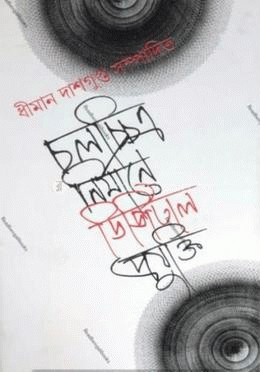 ধীমান দাশগুপ্ত সম্পাদিত
চলচ্চিত্র
নির্মাণে
ডিজিটাল
প্রযুক্তি